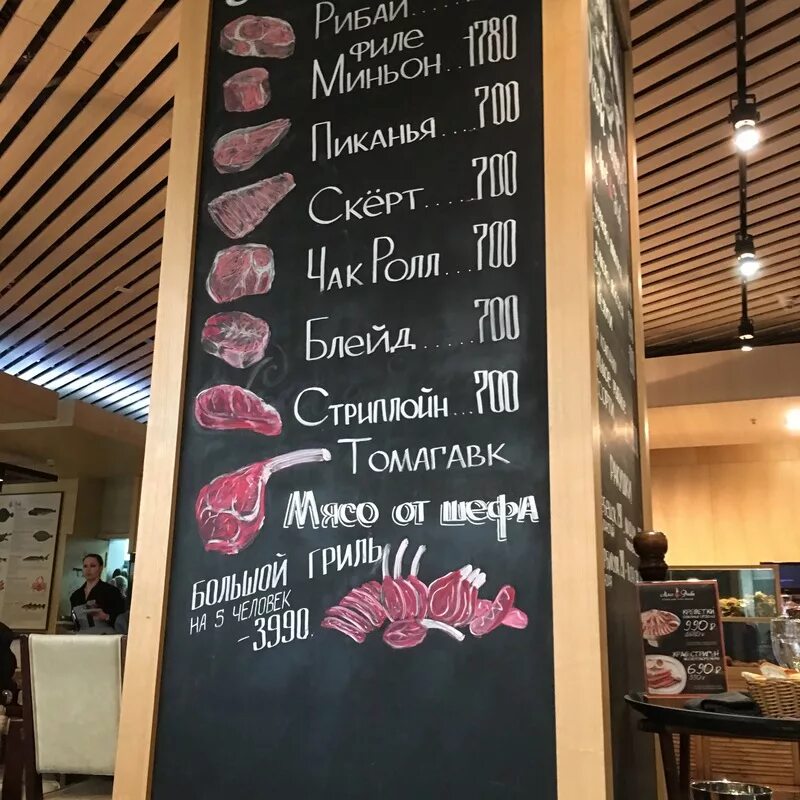 Рибай
филе
Миньон..1780
Пиканья....700
Скёрт......700
Чак Ролл...700
Блейд......700
Стриплойн...700
Томагавк
Мясо от шефа
Большой гриль
на 5 человек
-3990.
Креветки
990₽
Краб стригун
690₽